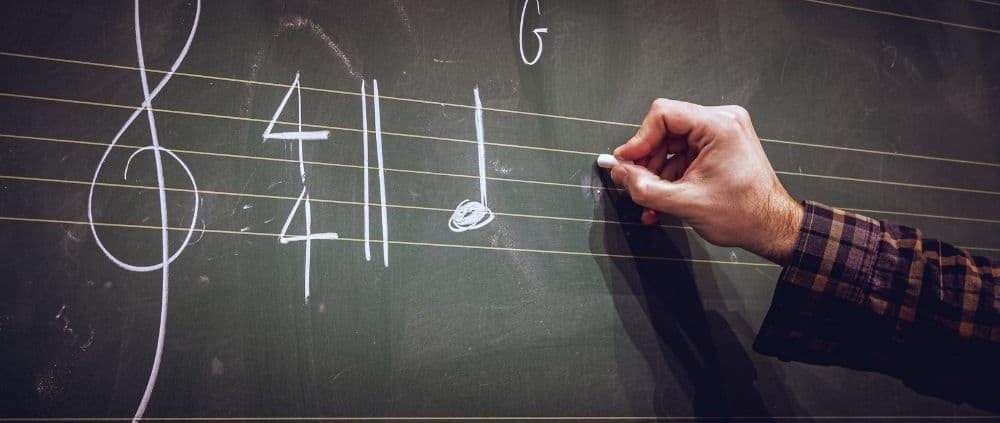 G
4
4